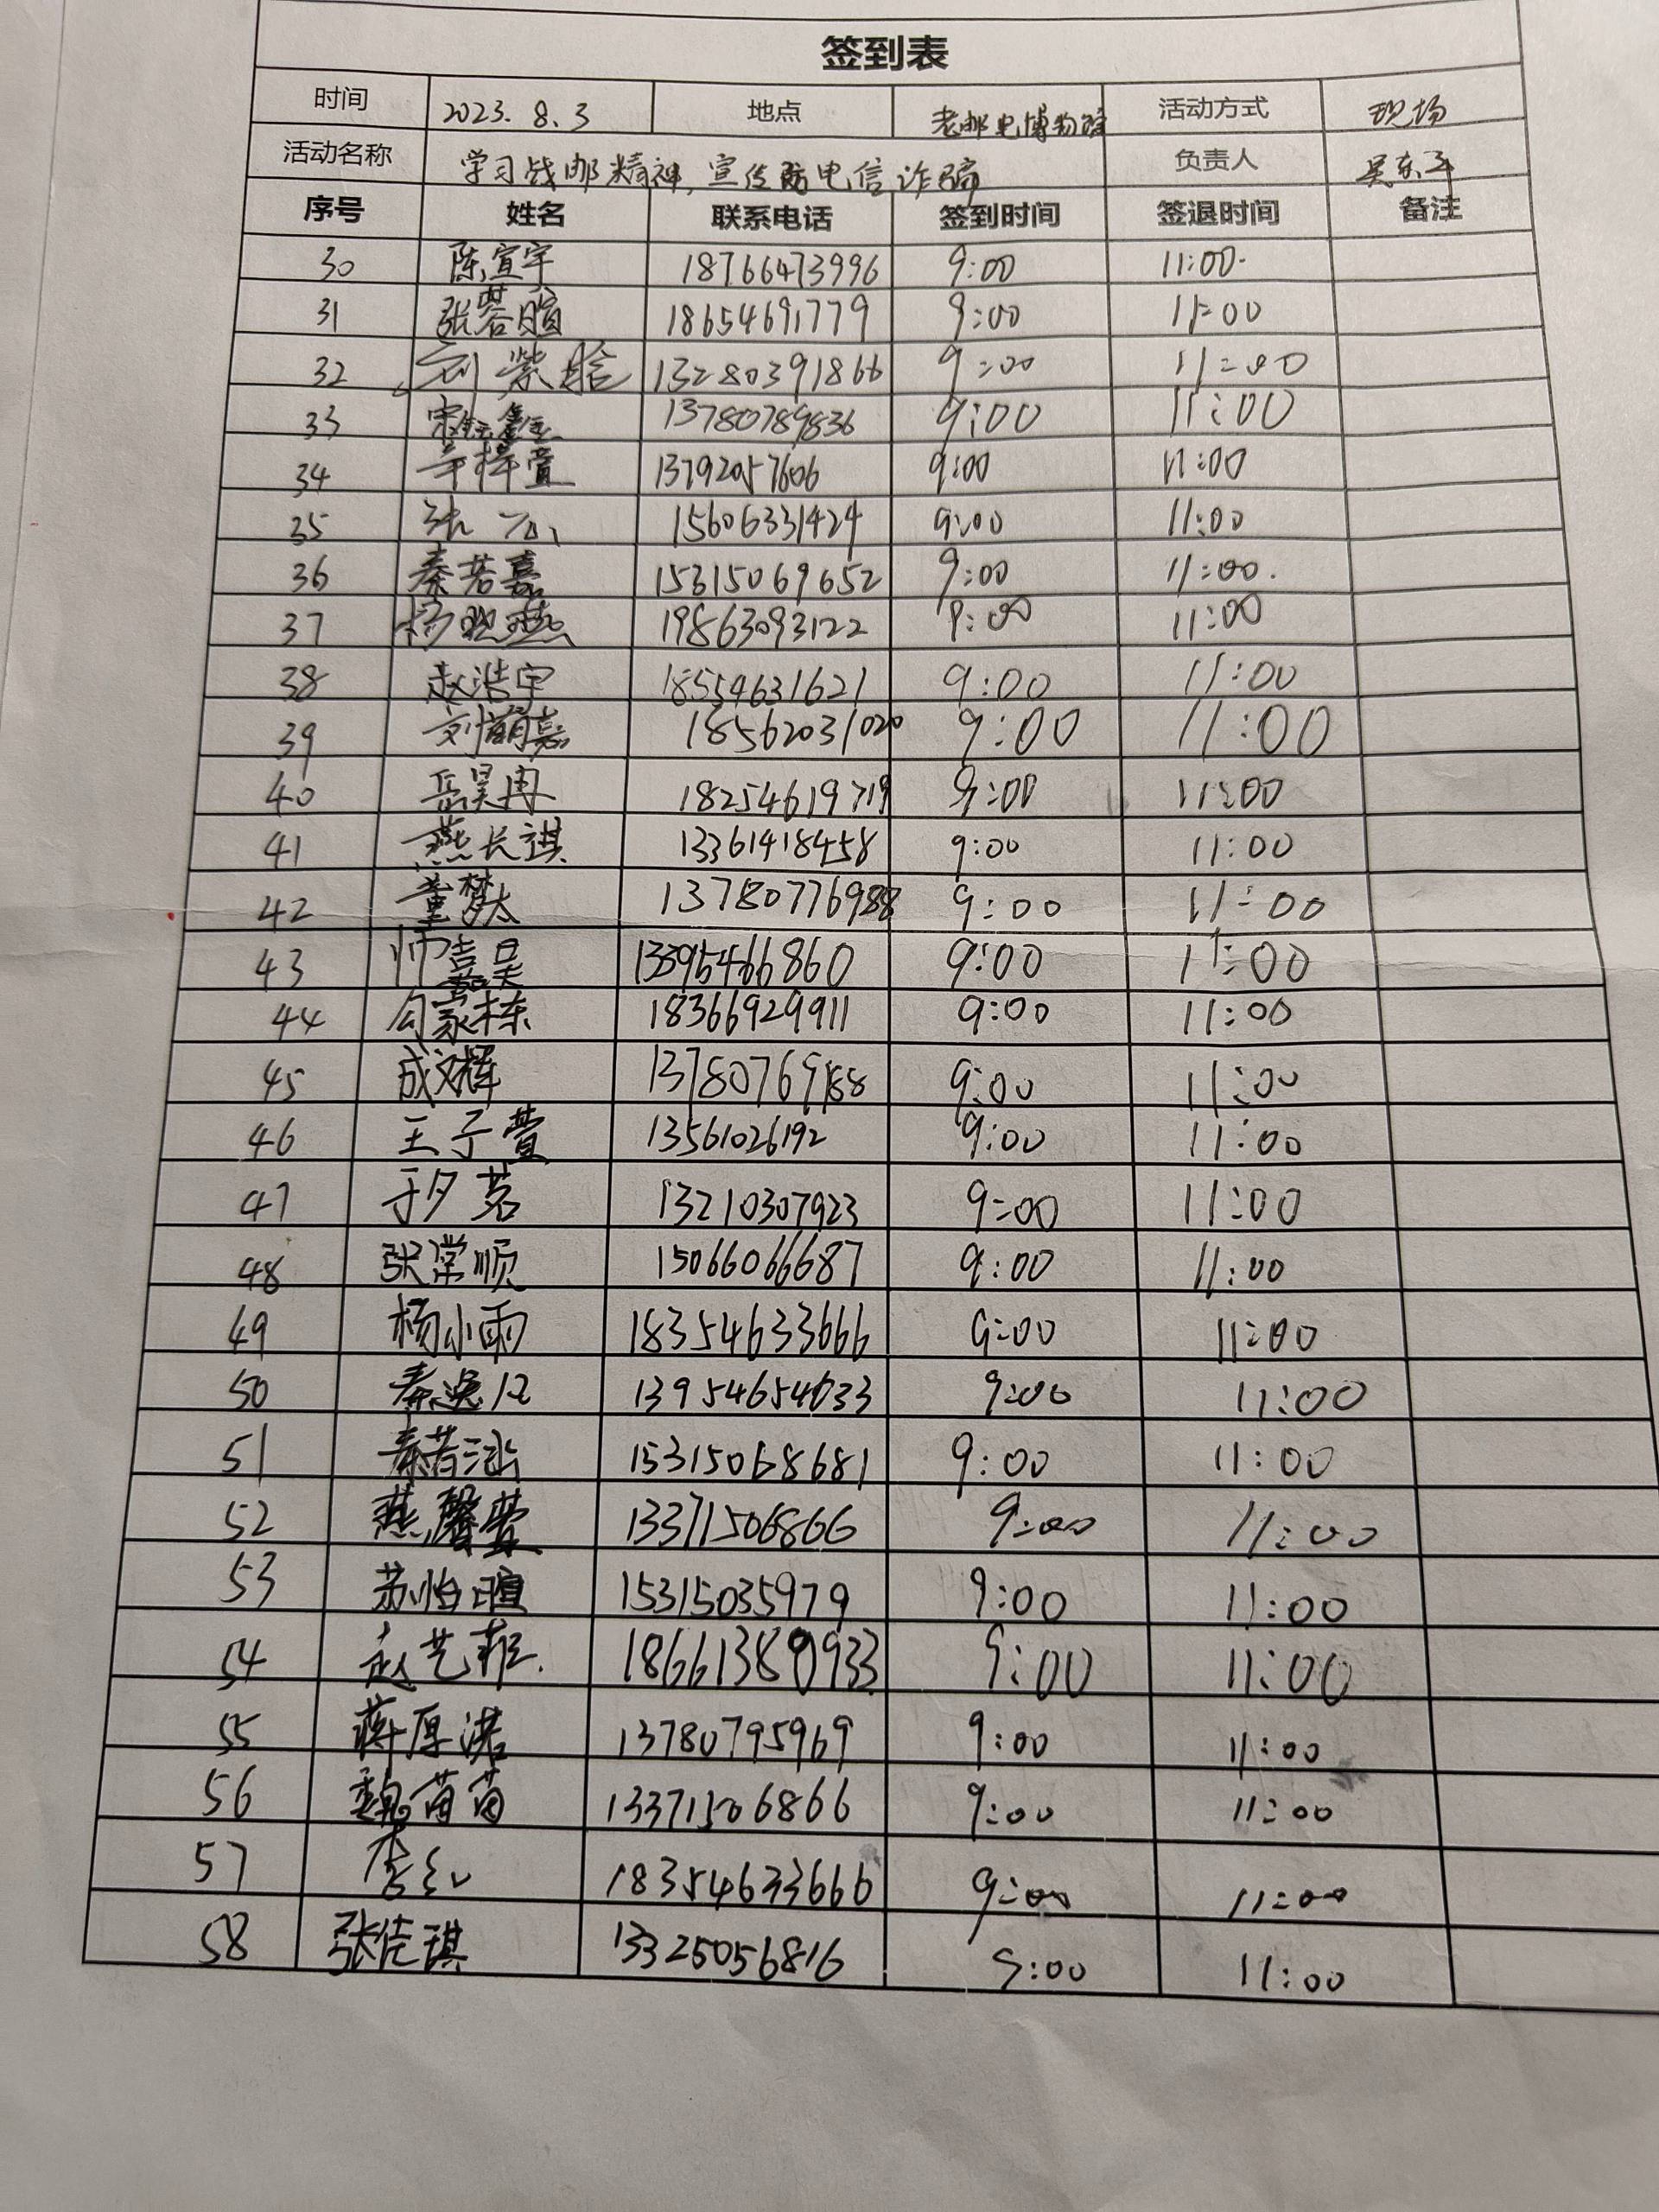 签到表
时间 2023.8.3 地点 老邮电博物馆 活动方式 现场
活动名称 学习战邮精神,宣传防电信诈骗 负责人 吴东
序号 姓名 联系电话 签到时间 签退时间 备注
30 陈宣宇 18766473996 9:00 11:00
31 张蓉暄 18654691779 9:00 11:00
32 刘紫晗 13280391866 9:00 11:00
33 宋鑫 13780789836 9:00 11:00
34 辛梓萱 13792057606 9:00 11:00
35 张 15606331424 9:00 11:00
36 秦若嘉 15315069652 9:00 11:00
37 杨晓燕 19863093122 9:00 11:00
38 赵浩宇 18554631621 9:00 11:00
39 刘萌嘉 18562031020 9:00 11:00
40 岳昊冉 18254619719 9:00 11:00
41 燕长祺 13361418458 9:00 11:00
42 董梦 13780776988 9:00 11:00
43 师 13395466860 9:00 11:00
44 勾家栋 18366929911 9:00 11:00
45 成文辉 1378076 9:00 11:00
46 王子萱 13561026192 9:00 11:00
47 于夕茗 13210307923 9:00 11:00
48 张常顺 15066066687 9:00 11:00
49 杨小雨 18354633666 9:00 11:00
50 秦逸凡 13954654633 9:00 11:00
51 秦若涵 15315068681 9:00 11:00
52 燕馨萱 13371506866 9:00 11:00
53 苏怡暄 15315035979 9:00 11:00
54 赵艺菲 18661380933 9:00 11:00
55 蒋厚诺 13780795969 9:00 11:00
56 魏苗苗 13371506866 9:00 11:00
57 李红 18354633666 9:00 11:00
58 张佳琪 13325056816 9:00 11:00